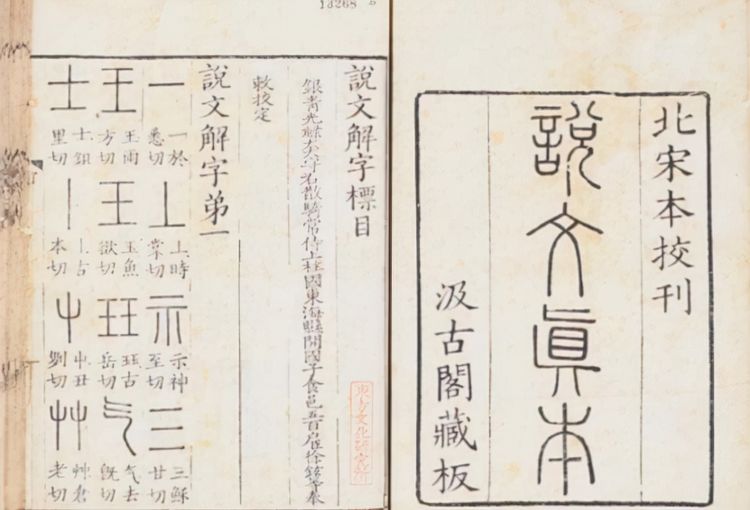 北宋本挍刊
說文眞本
汲古閣藏板
說文解字標目
銀青光祿大夫守右散騎常侍上柱國東海縣開國子食邑五百戶臣徐鉉等奉
敕挍定
說文解字弟一
一 一於悉切 丄 丄時掌切 示 示神至切 三 三穌甘切
王 王雨方切 王 玉魚欲切 玨 玨古岳切 气 气去旣切
士 士鉏里切 丨 丨古本切 屮 屮丑切 艸 艸倉老切